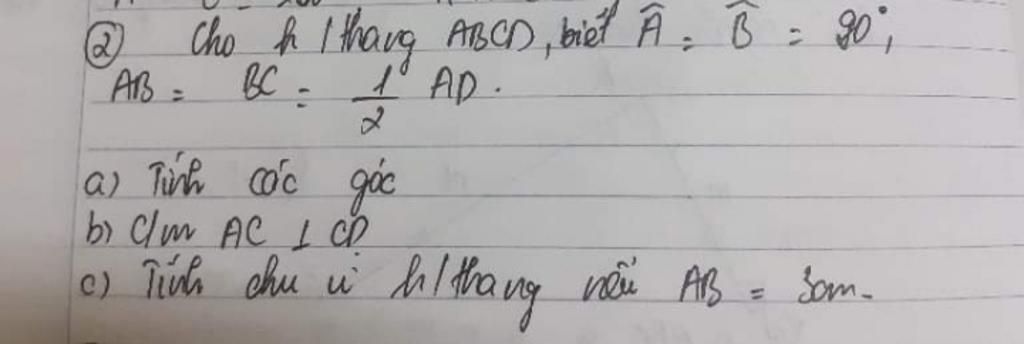 ② Cho h/thang ABCD, biết Â = B̂ = 90°,
AB = BC = 1/2 AD.
a) Tính các góc
b) C/m AC ⊥ CD
c) Tính chu vi h/thang nếu AB = 3cm.